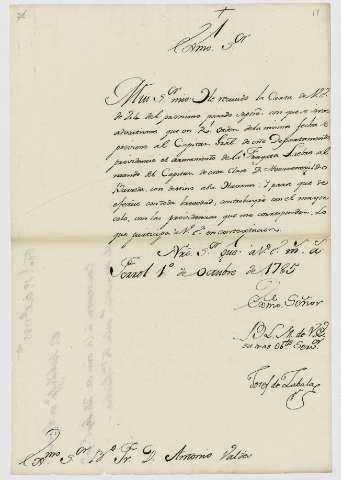 Exmo. Sor.
Muy Sor. mio: He recivido la Carta de V.E.
de 24 del proximo pasado Septre. con que se sirve
que en Rl. Orden de la misma fecha se
previene al Capitan Gral. de este Departamento
providencie el armamento de la Fragata Lucia al
mando del Capitan de esta Clase D. Hermenegildo
con destino a la Havana: Y para que se
efectue con toda brevedad, contribuyo con el mayor
celo, con las providencias que me corresponden. Lo
que participo a V.E. en contextacion.
Nro. Sr. gue. a V.E. ms. as.
Ferrol 1º de Octubre de 1785
Exmo. Señor
B. L. M. de V.E.
su mas obte. Servr.
Josef de Zabala
Exmo. Sor. Bo. Fr. D. Antonio Valdes